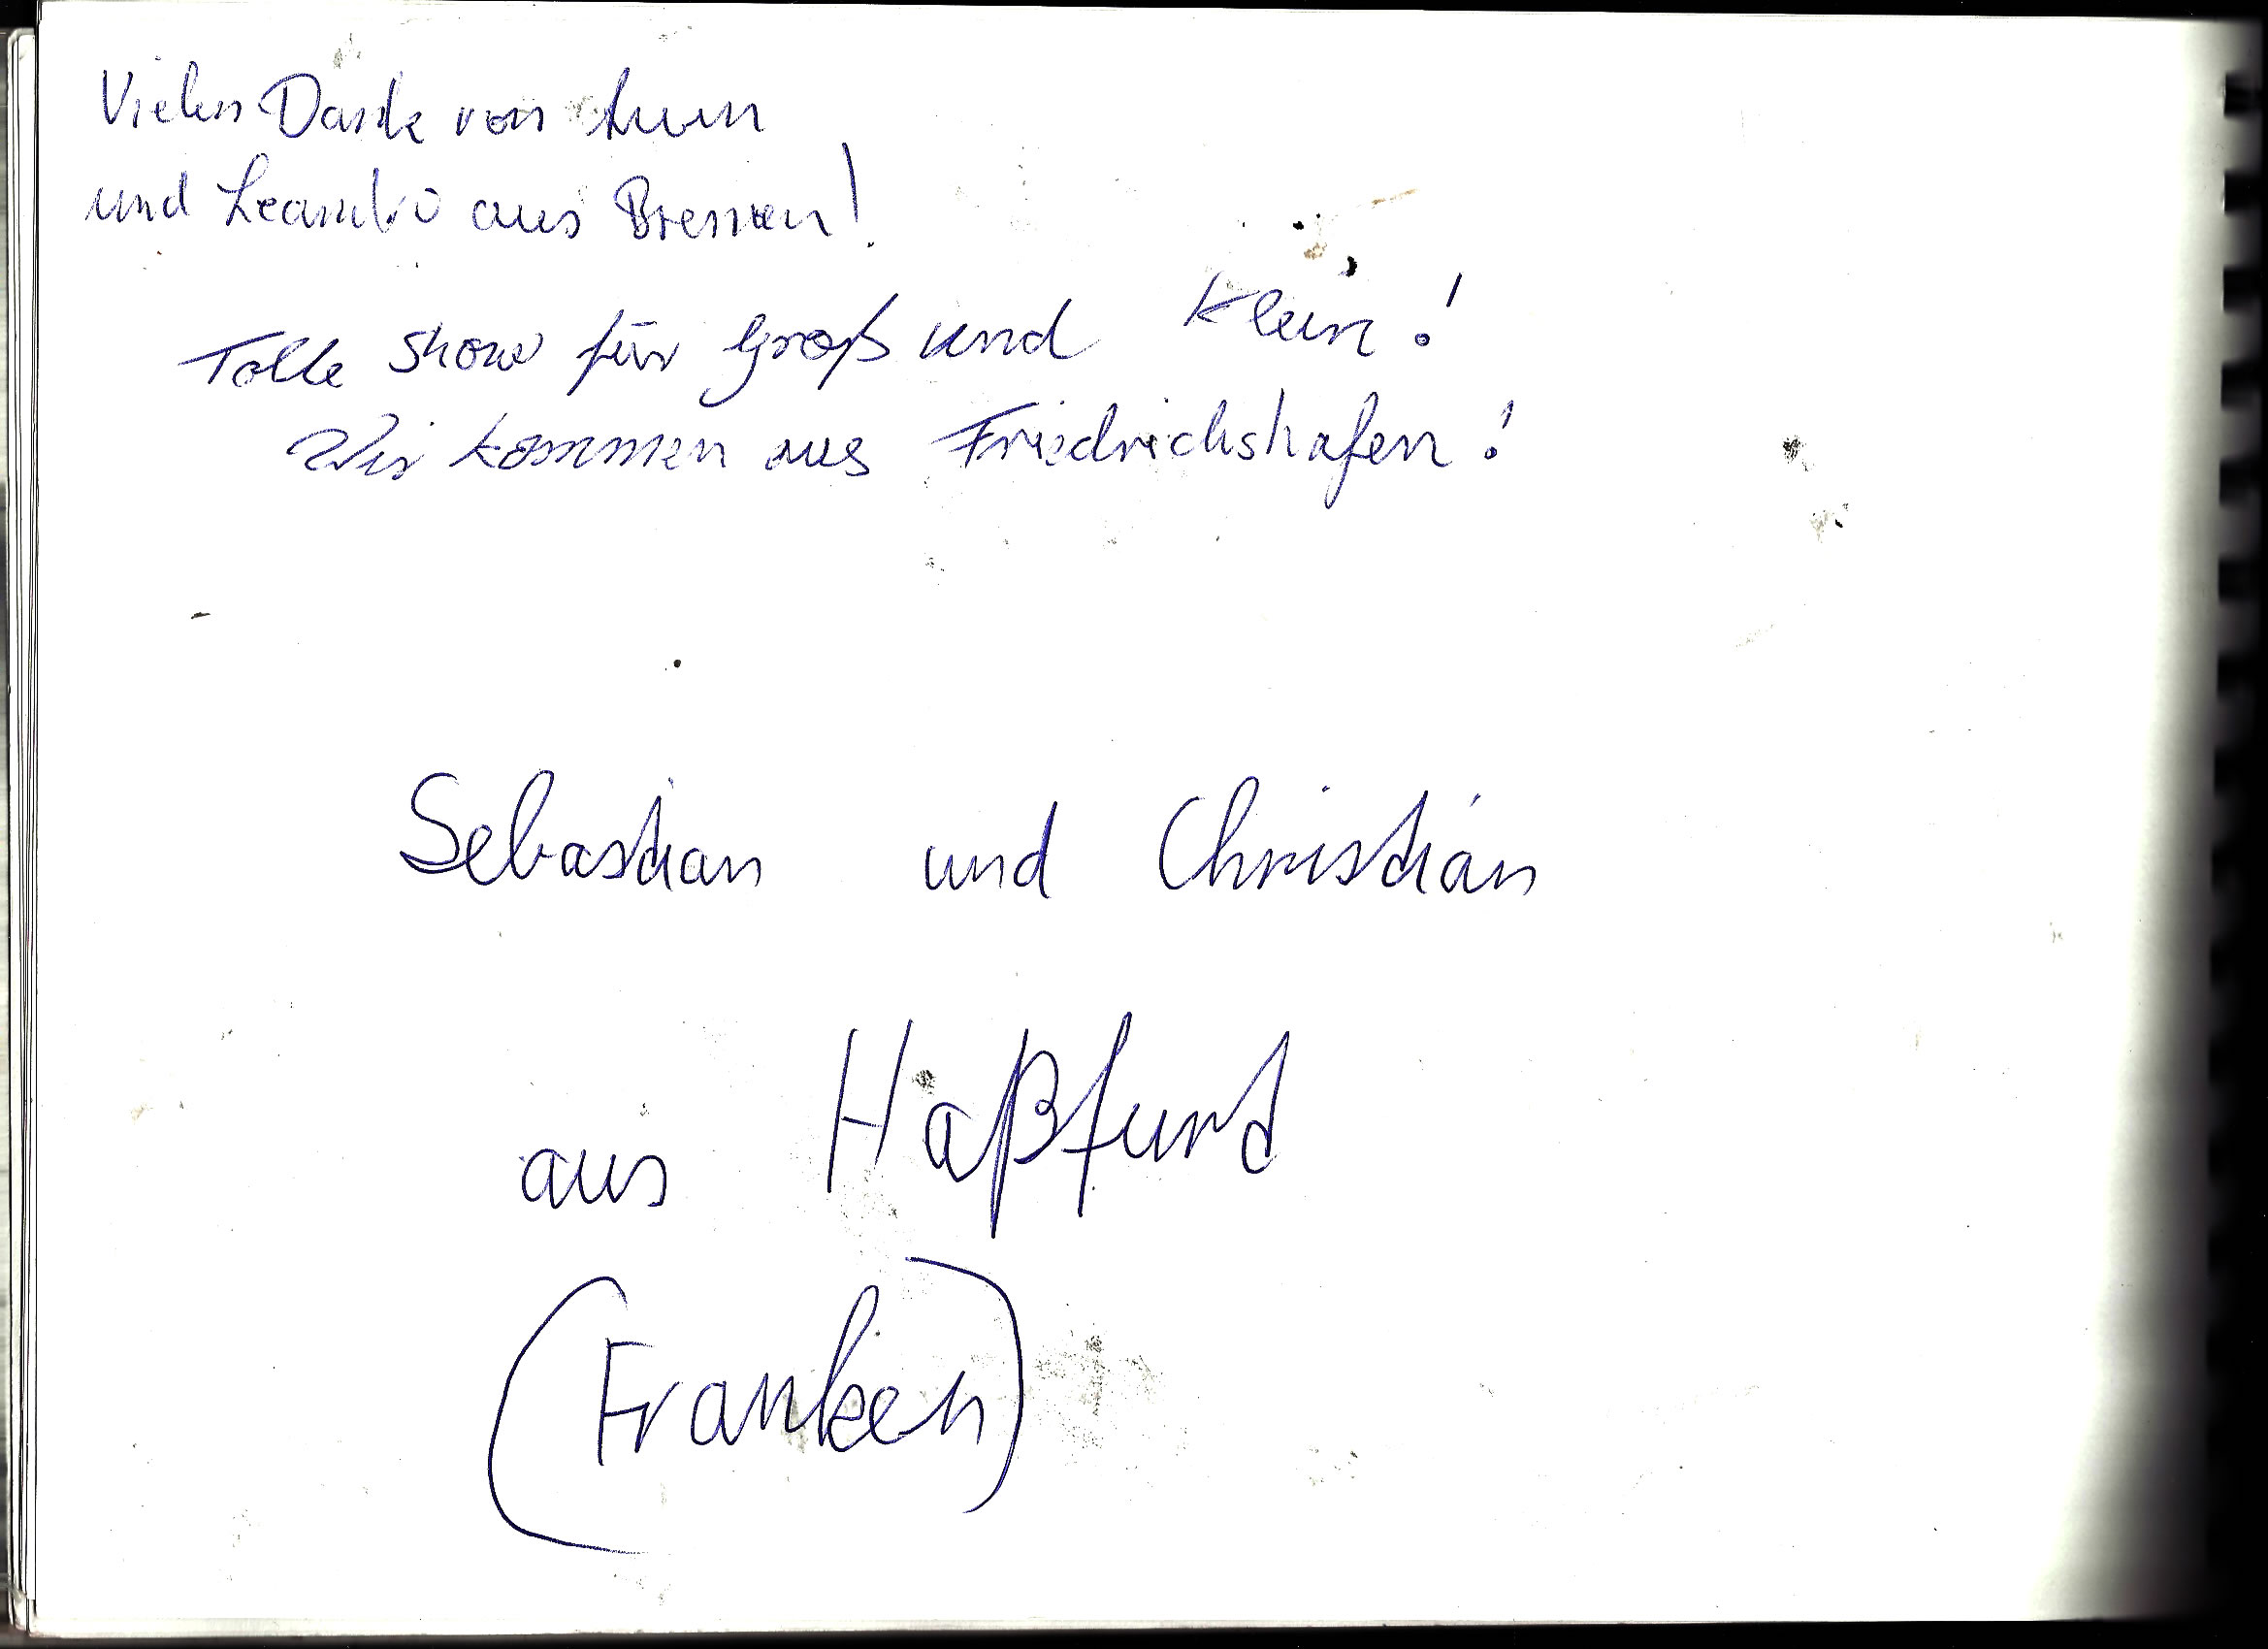 Vielen Dank von
und aus Bremen!
Tolle Show für Groß und Klein!
Wir kommen aus Friedrichshafen!
Sebastian und Christian
aus Haßfurt
(Franken)